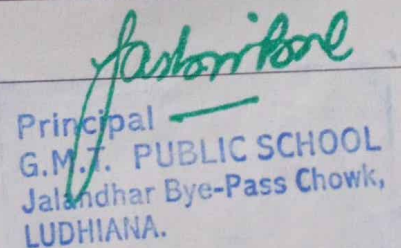 Principal
G.M.T. PUBLIC SCHOOL
Jalandhar Bye-Pass Chowk,
LUDHIANA.